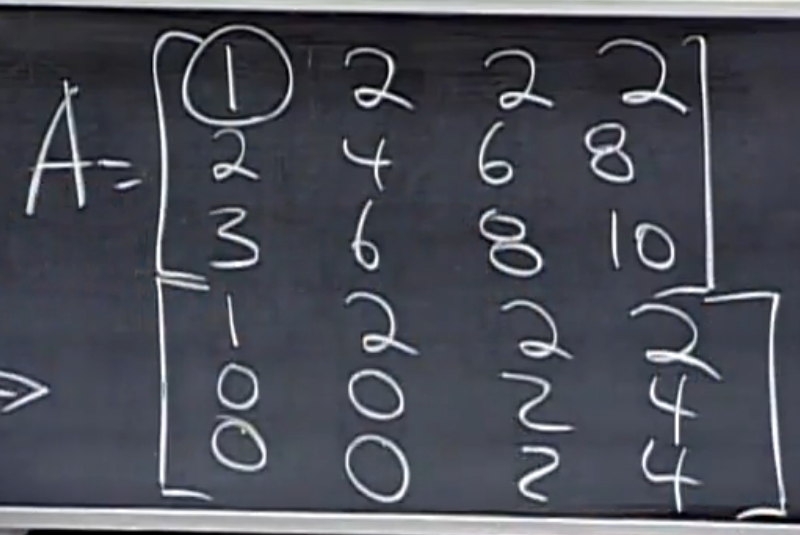 A = [ 1 2 2 2
2 4 6 8
3 6 8 10 ]
⇒ [ 1 2 2 2
0 0 2 4
0 0 2 4 ]